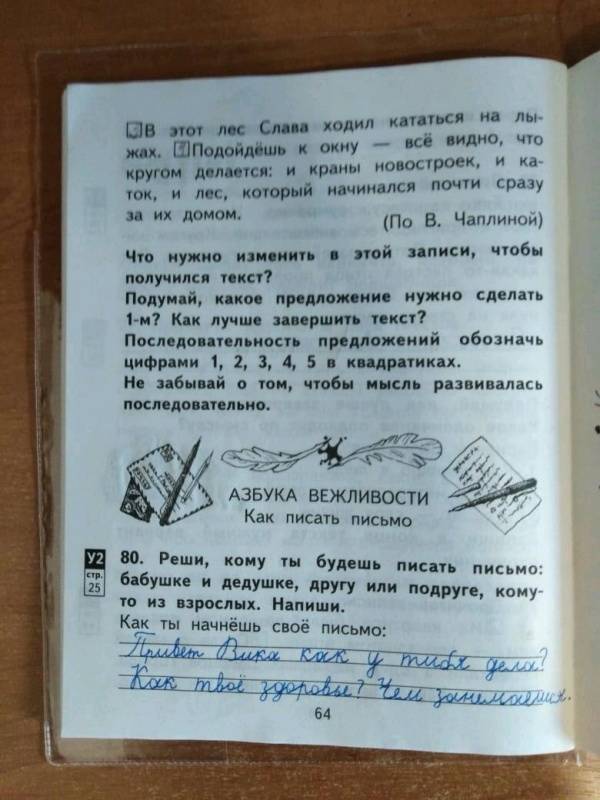 В этот лес Слава ходил кататься на лы-
жах. Подойдёшь к окну — всё видно, что
кругом делается: и краны новостроек, и ка-
ток, и лес, который начинался почти сразу
за их домом.
(По В. Чаплиной)
Что нужно изменить в этой записи, чтобы
получился текст?
Подумай, какое предложение нужно сделать
1-м? Как лучше завершить текст?
Последовательность предложений обозначь
цифрами 1, 2, 3, 4, 5 в квадратиках.
Не забывай о том, чтобы мысль развивалась
последовательно.
АЗБУКА ВЕЖЛИВОСТИ
Как писать письмо
У2
стр.
25
80. Реши, кому ты будешь писать письмо:
бабушке и дедушке, другу или подруге, кому-
то из взрослых. Напиши.
Как ты начнёшь своё письмо:
Привет Вика как у тибя дела?
Как твоё здоровье? Чем занемаешся.
64